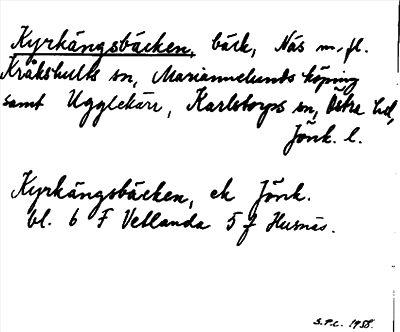 Kyrkängsbäcken, bäck, Näs m.fl.
Kråkshults sn, Mariannelunds köping
samt Ugglekärr, Karlstorps sn, Östra hd,
Jönk. l.
Kyrkängsbäcken, ek Jönk.
bl. 6 F Vetlanda 5 f Husnäs.
S.P.L. 1958.